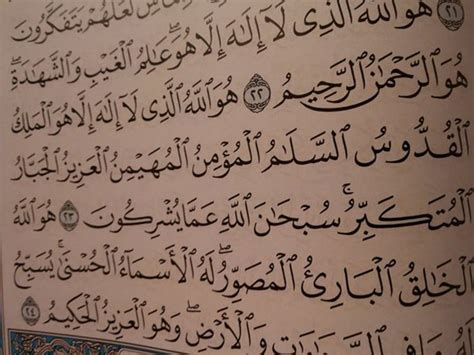 لَعَلَّهُمْ يَتَفَكَّرُونَ
٢١ هُوَ ٱللَّهُ ٱلَّذِى لَآ إِلَٰهَ إِلَّا هُوَ ۖ عَٰلِمُ ٱلْغَيْبِ وَٱلشَّهَٰدَةِ ۖ
هُوَ ٱلرَّحْمَٰنُ ٱلرَّحِيمُ ٢٢ هُوَ ٱللَّهُ ٱلَّذِى لَآ إِلَٰهَ إِلَّا هُوَ ٱلْمَلِكُ
ٱلْقُدُّوسُ ٱلسَّلَٰمُ ٱلْمُؤْمِنُ ٱلْمُهَيْمِنُ ٱلْعَزِيزُ ٱلْجَبَّارُ
ٱلْمُتَكَبِّرُ ۚ سُبْحَٰنَ ٱللَّهِ عَمَّا يُشْرِكُونَ ٢٣ هُوَ ٱللَّهُ
ٱلْخَٰلِقُ ٱلْبَارِئُ ٱلْمُصَوِّرُ ۖ لَهُ ٱلْأَسْمَآءُ ٱلْحُسْنَىٰ ۚ يُسَبِّحُ
مَا فِى ٱلسَّمَٰوَٰتِ وَٱلْأَرْضِ ۖ وَهُوَ ٱلْعَزِيزُ ٱلْحَكِيمُ ٢٤